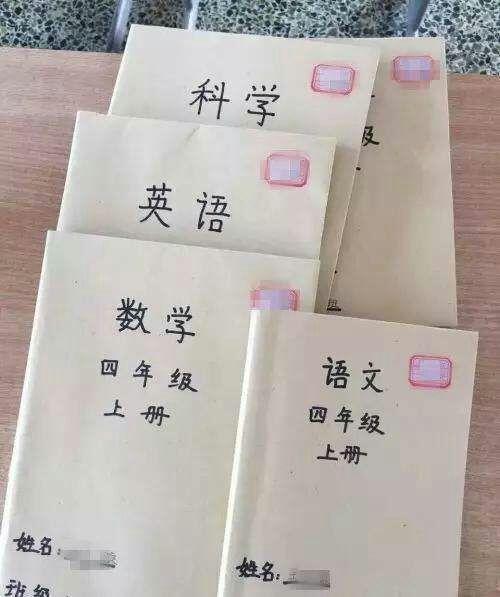 科学
级
英语
数学
四年级
上册
姓名:
班级
语文
四年级
上册
姓名: